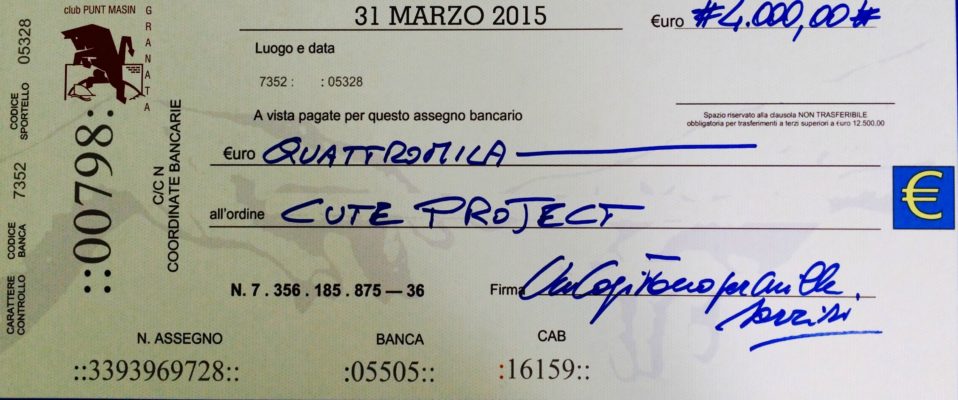 club PUNT MASIN
GRANATA
31 MARZO 2015
€uro #4.000,00#
Luogo e data
7352 : : 05328
A vista pagate per questo assegno bancario
Spazio riservato alla clausola NON TRASFERIBILE
obbligatoria per trasferimenti a terzi superiori a €uro 12.500.00
€uro QUATTROMILA
all'ordine CUTE PROJECT
€
N. 7 . 356 . 185 . 875 — 36
Firma Un Capitano per mille
sorrisi
N. ASSEGNO BANCA CAB
::3393969728:: :05505:: :16159::
CODICE SPORTELLO 05328
CODICE BANCA 7352
CARATTERE CONTROLLO
::00798:
C/C N
COORDINATE BANCARIE